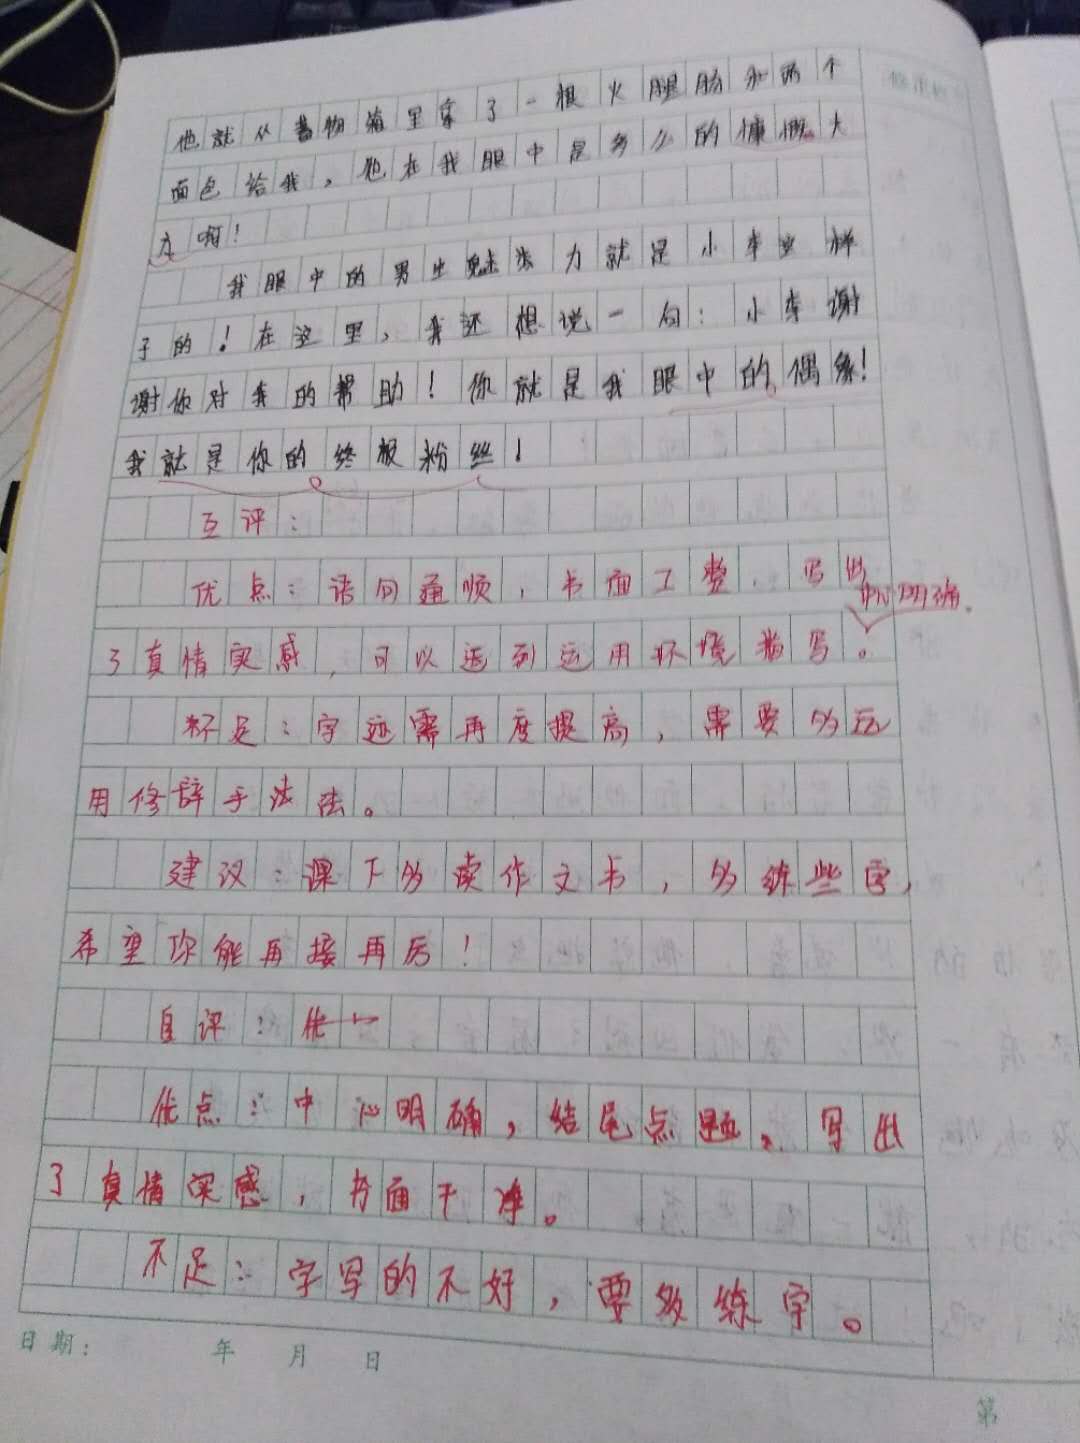 他就从书物箱里拿了一根火腿肠和两个
面包给我，他在我眼中是多么的慷慨大
方啊！
我眼中的男生魅力就是小李这样
子的！在这里，我还想说一句：小李谢
谢你对我的帮助！你就是我眼中的偶像！
我就是你的终极粉丝！
互评：
优点：语句通顺，书面工整，写出
中心明确，
了真情实感，可以适到运用环境描写。
不足：字还需再度提高，需要多运
用修辞手法法。
建议：课下多读作文书，多练些字，
希望你能再接再厉！
自评：优
优点：中心明确，结尾点题，写出
了真情实感，书面干净。
不足：字写的不好，要多练字。
日期： 年 月 日
第